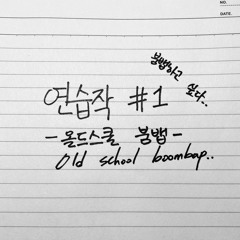 NO.
붐뱁하고
싶다..
연습작 #1
-올드스쿨 붐뱁-
Old school boombap..